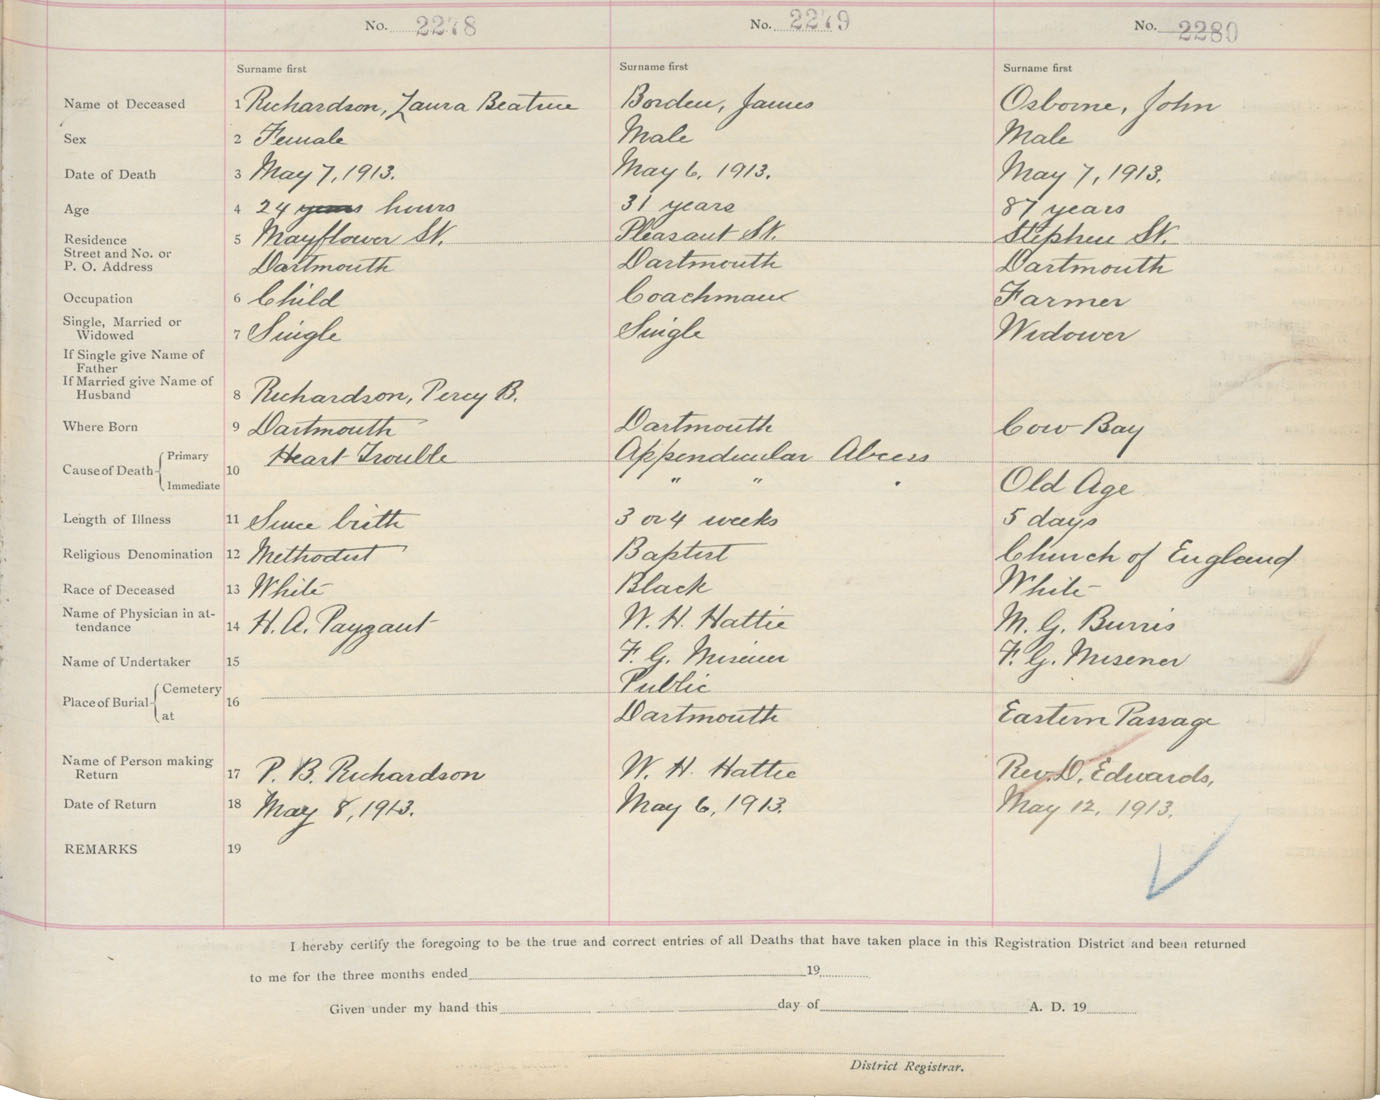 No. 2278 No. 2279 No. 2280
Surname first Surname first Surname first
Name of Deceased 1 Richardson, Laura Beatrice Borden, James Osborne, John
Sex 2 Female Male Male
Date of Death 3 May 7, 1913. May 6, 1913. May 7, 1913.
Age 4 24 years hours 31 years 87 years
Residence 5 Mayflower St. Pleasant St. Stephen St.
Street and No. or
P. O. Address Dartmouth Dartmouth Dartmouth
Occupation 6 Child Coachman Farmer
Single, Married or
Widowed 7 Single Single Widower
If Single give Name of
Father
If Married give Name of
Husband 8 Richardson, Percy B.
Where Born 9 Dartmouth Dartmouth Cow Bay
Primary Heart Trouble Appendicular Abcess
Cause of Death 10
Immediate " " " Old Age
Length of Illness 11 Since birth 3 or 4 weeks 5 days
Religious Denomination 12 Methodist Baptist Church of England
Race of Deceased 13 White Black White
Name of Physician in at-
tendance 14 H. A. Payzant W. H. Hattie M. G. Burris
Name of Undertaker 15 F. G. Misener F. G. Misener
Cemetery Public
Place of Burial 16
at Dartmouth Eastern Passage
Name of Person making
Return 17 P. B. Richardson W. H. Hattie Rev. D. Edwards,
Date of Return 18 May 8, 1913. May 6, 1913. May 12, 1913.
REMARKS 19
I hereby certify the foregoing to be the true and correct entries of all Deaths that have taken place in this Registration District and been returned
to me for the three months ended 19
Given under my hand this day of A. D. 19
District Registrar.